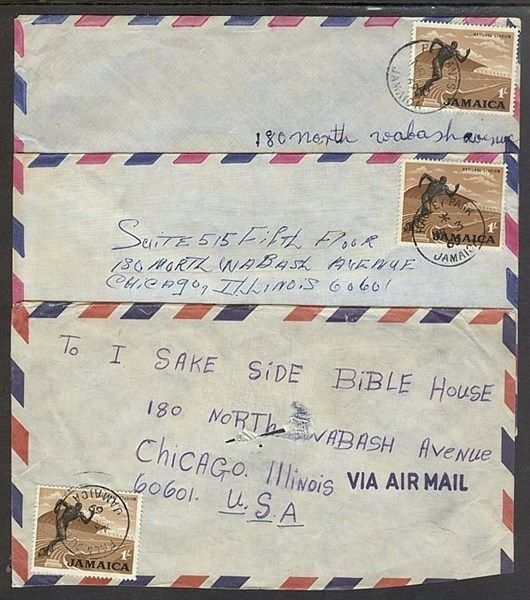 NATIONAL STADIUM
1/-
JAMAICA
JAMAICA
180 north wabash avenue
NATIONAL STADIUM
1/-
JAMAICA
PARK
JAMAICA
SUITE 515 FIFTH FLOOR
180 NORTH WABASH AVENUE
CHICAGO, ILLINOIS 60601
To I SAKE SiDE BiBLE HOUSE
180 NORTH WABASH AVENUE
CHiCAGO. Illinois
VIA AIR MAIL
60601. U.S.A
NATIONAL STADIUM
1/-
JAMAICA
JAMAICA